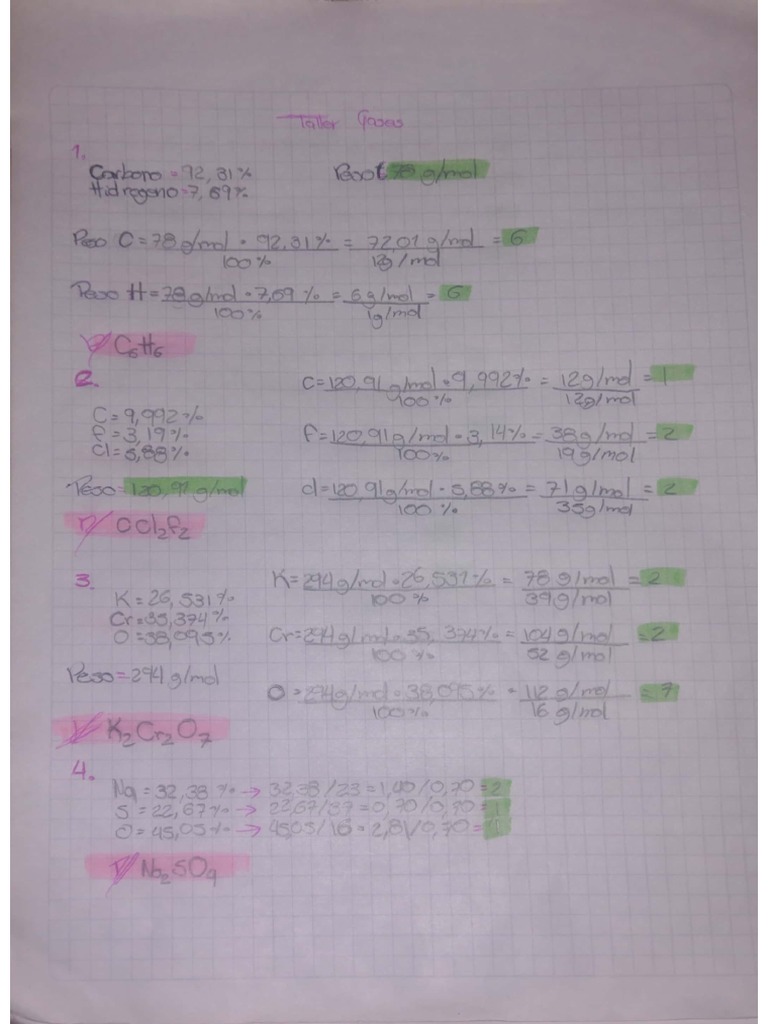 Taller Gases
1.
Carbono = 92,31%
Peso 78 g/mol
Hidrogeno = 7,69%
Peso C = 78 g/mol · 92,31% = 72,01 g/mol = 6
100% 12g/mol
Peso H = 78 g/mol · 7,69 % = 6 g/mol = 6
100% 1g/mol
C6H6
2.
C = 120,91 g/mol · 9,992% = 12g/mol = 1
100% 12g/mol
C = 9,992%
F = 3,19%
Cl = 5,88%
F = 120,91 g/mol · 3,14% = 38 g/mol = 2
100% 19 g/mol
Peso = 120,91 g/mol
Cl = 120,91 g/mol · 5,88% = 71 g/mol = 2
100 % 35g/mol
CCl2F2
3.
K = 294 g/mol · 26,531 % = 78 g/mol = 2
100 % 39 g/mol
K = 26,531%
Cr = 35,374 %
O = 38,095%
Cr = 294 g/mol · 35,374% = 104 g/mol = 2
100% 52 g/mol
Peso = 294 g/mol
O = 294 g/mol · 38,095% = 112 g/mol = 7
100% 16 g/mol
K2Cr2O7
4.
Na = 32,38 % → 32,38/23 = 1,40/0,70 = 2
S = 22,67% → 22,67/ = 0,70/0,70 = 1
O = 45,05% → 45,05/16 = 2,81/0,70 =
Na2SO4